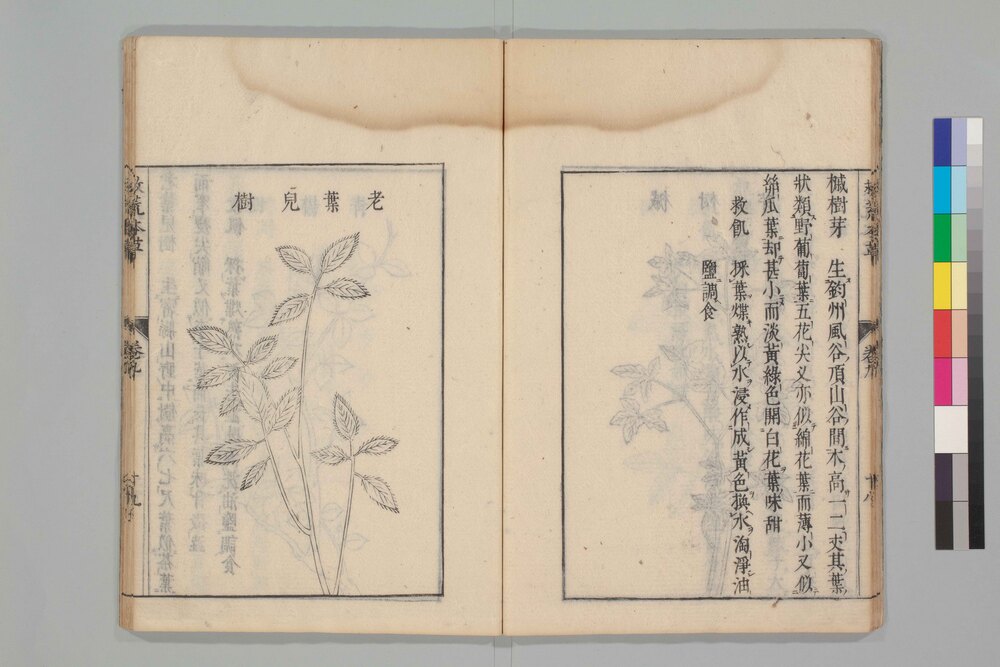 槭樹芽　生鈞州風谷頂山谷間木高一二丈其葉
狀類野葡萄葉五花尖叉亦似綿花葉而薄小又似
絲瓜葉却甚小而淡黃綠色開白花葉味甜
救飢　採葉煠熟以水浸作成黃色換水淘淨油
鹽調食
老葉兒樹
救荒本草
卷九
十九